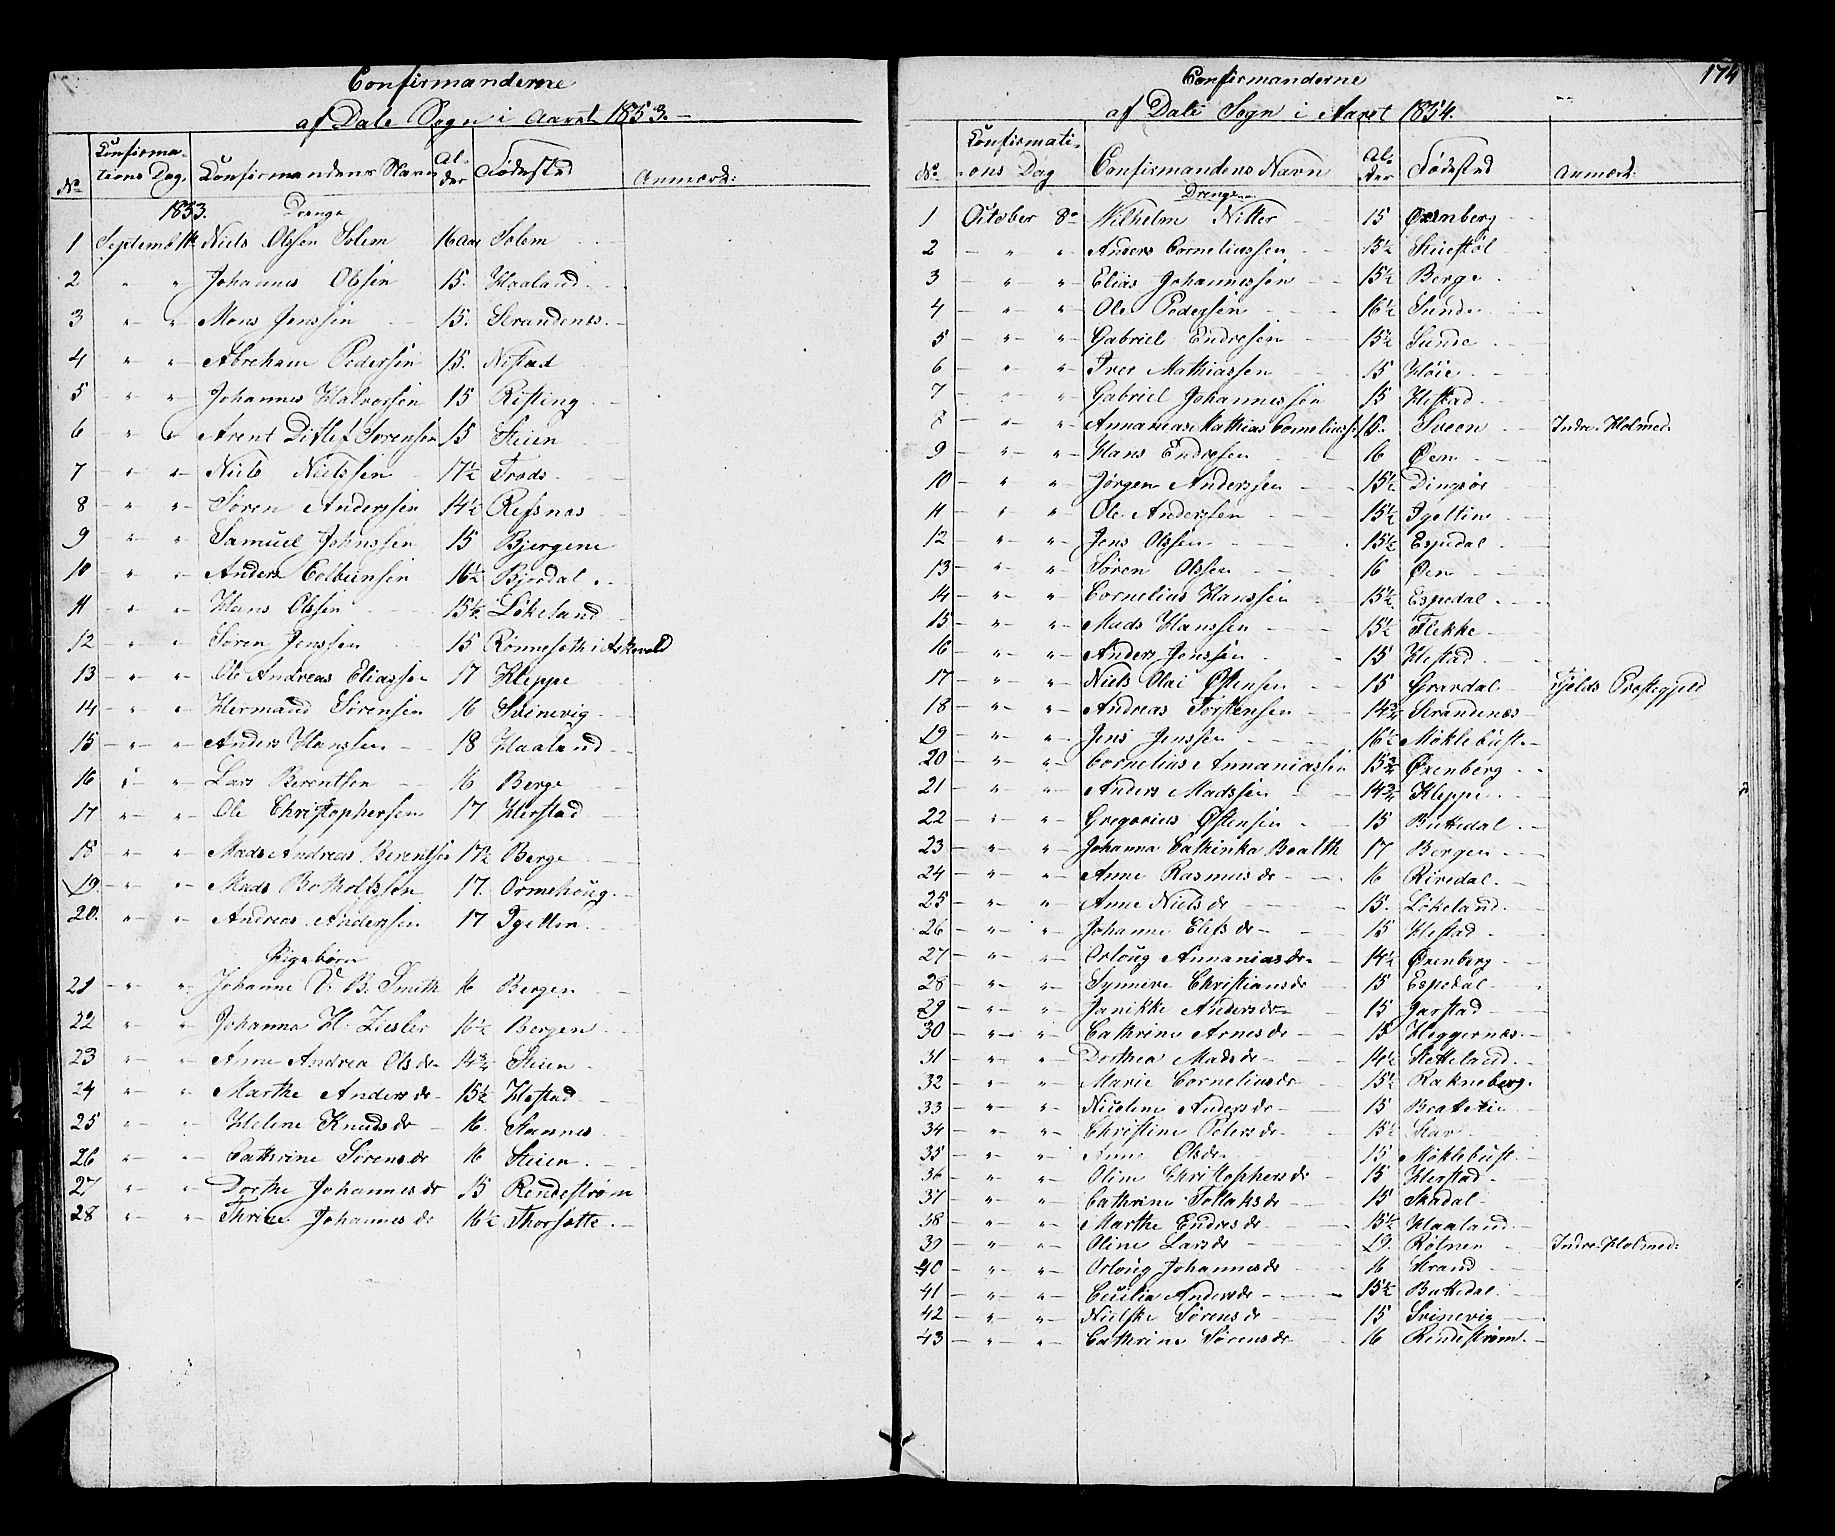 Confirmanderne
af Dale Sogn i Aaret 1853.
No Confirmations Dag. Confirmandens Navn Alder Fødested Anmærk:
1853. Drenge
1 Septemb 11te Niels Olssen Solem 16 Aar Solem
2 " " Johannes Olssen 15. Haaland
3 " " Mons Jenssen 15. Strandenæs
4 " " Abreham Pederssen 15. Nistad
5 " " Johannes Halvorssen 15 Risting
6 " " Arent Ditlef Sørensen 15 Steien
7 " " Niels Nielssen 17½ Frøds
8 " " Søren Anderssen 14½ Refsnes
9 " " Samuel Johnssen 15 Bjergene
10 " " Anders Colbensen 16½ Bjordal
11 " " Hans Olssen 15½ Løkeland
12 " " Søren Jenssen 15 Rønnesæth i Askevold
13 " " Ole Andreas Eliassen 17 Kleppe
14 " " Hermand Sørensen 16 Svinevig
15 " " Anders Hanssen 18 Haaland
16 " " Lars Berentsen 16 Berge
17 " " Ole Christophersen 17 Herstad
18 " " Mads Andreas Berentsen 17½ Berge
19 " " Mads Botholfssen 17. Ormehoug
20. " " Andreas Anderssen 17 Igelten
Pigebørn
21 " " Johanne V. B. Smith 16 Bergen
22 " " Johanna H. Ziesler 16½ Bergen
23 " " Anne Andrea Olsdr 14¾ Steien
24 " " Marthe Andersdr 15½ Hestad
25 " " Helene Knudsdr 16. Stannes
26 " " Cathrine Sørensdr 16 Steien
27 " " Dorthe Johannesdr 15 Rendestrøm
28 " " Thrine Johannesdr 16½ Thorsætte
174
Confirmanderne
af Dale Sogn i Aaret 1854.
No Confirmations Dag Confirmandens Navn Alder Fødested Anmærk:
Drenge
1 October 8de Wilhelm Nitter 15 Ørenberg
2 " " Anders Corneliussen 15½ Stuestøl
3 " " Elias Johannessen 15½ Berge
4 " " Ole Pederssen 16½ Sunde
5 " " Gabriel Endresen 15½ Sunde
6 " " Iver Mathiassen 15 Høie
7 " " Gabriel Johannessen 15 Hestad
8 " " Annanias Mathias Corneliuss. 16. Sveen Indre Holmed:
9 " " Hans Endresen 16 Øen
10 " " Jørgen Anderssen 15½ Dingsør
11 " " Ole Anderssen 15½ Igeltin
12 " " Jens Olssen 15½ Espedal
13 " " Søren Olssen 16 Øen
14 " " Cornelius Hanssen 15½ Espedal
15 " " Mads Hanssen 15½ Flekke
16 " " Anders Jenssen 15 Hestad
17 " " Niels Olai Østensen 15 Gravdal Fjelds Præstegjeld
18 " " Andreas Torstensen 14¾ Strandenæs
19 " " Jens Jenssen 16½ Møklebust
20 " " Cornelius Annaniassen 15¾ Ørenberg
21 " " Anders Madssen 14¾ Kleppe
22 " " Gregorius Østensen 15 Buttedal
23 " " Johanna Cathinka Boalth 17 Bergen
24 " " Anne Rasmusdr 16 Rivedal
25 " " Anne Nielsdr 15. Løkeland
26 " " Johanne Elifsdr 15 Hestad
27 " " Orloug Annaniasdr 14½ Ørenberg
28 " " Synneve Christiansdr 15 Espedal
29 " " Janikke Andersdr 15 Jarstad
30 " " Cathrine Arnesdr 15 Heggernæs
31 " " Dorthea Madsdr 14½ Sletteland
32 " " Marie Corneliusdr 15½ Rakneberg
33 " " Nicoline Andersdr 15
34 " " Christine Petersdr 15½
35 " " Anne Olsdr 15 Møklebust
36 " " Oline Christophersdr 15 Herstad
37 " " Cathrine Tollaksdr 15 Skadal
38 " " Marthe Endresdr 15½ Haaland
39 " " Oline Larsdr 19. Røtnen Indre Holmed:
40 " " Orloug Johannesdr 16 Strand
41 " " Cecilia Andersdr 15½ Buttedal
42 " " Nielske Sørensdr 15 Svinevig
43 " " Cathrine Sørensdr 16 Rendestrøm